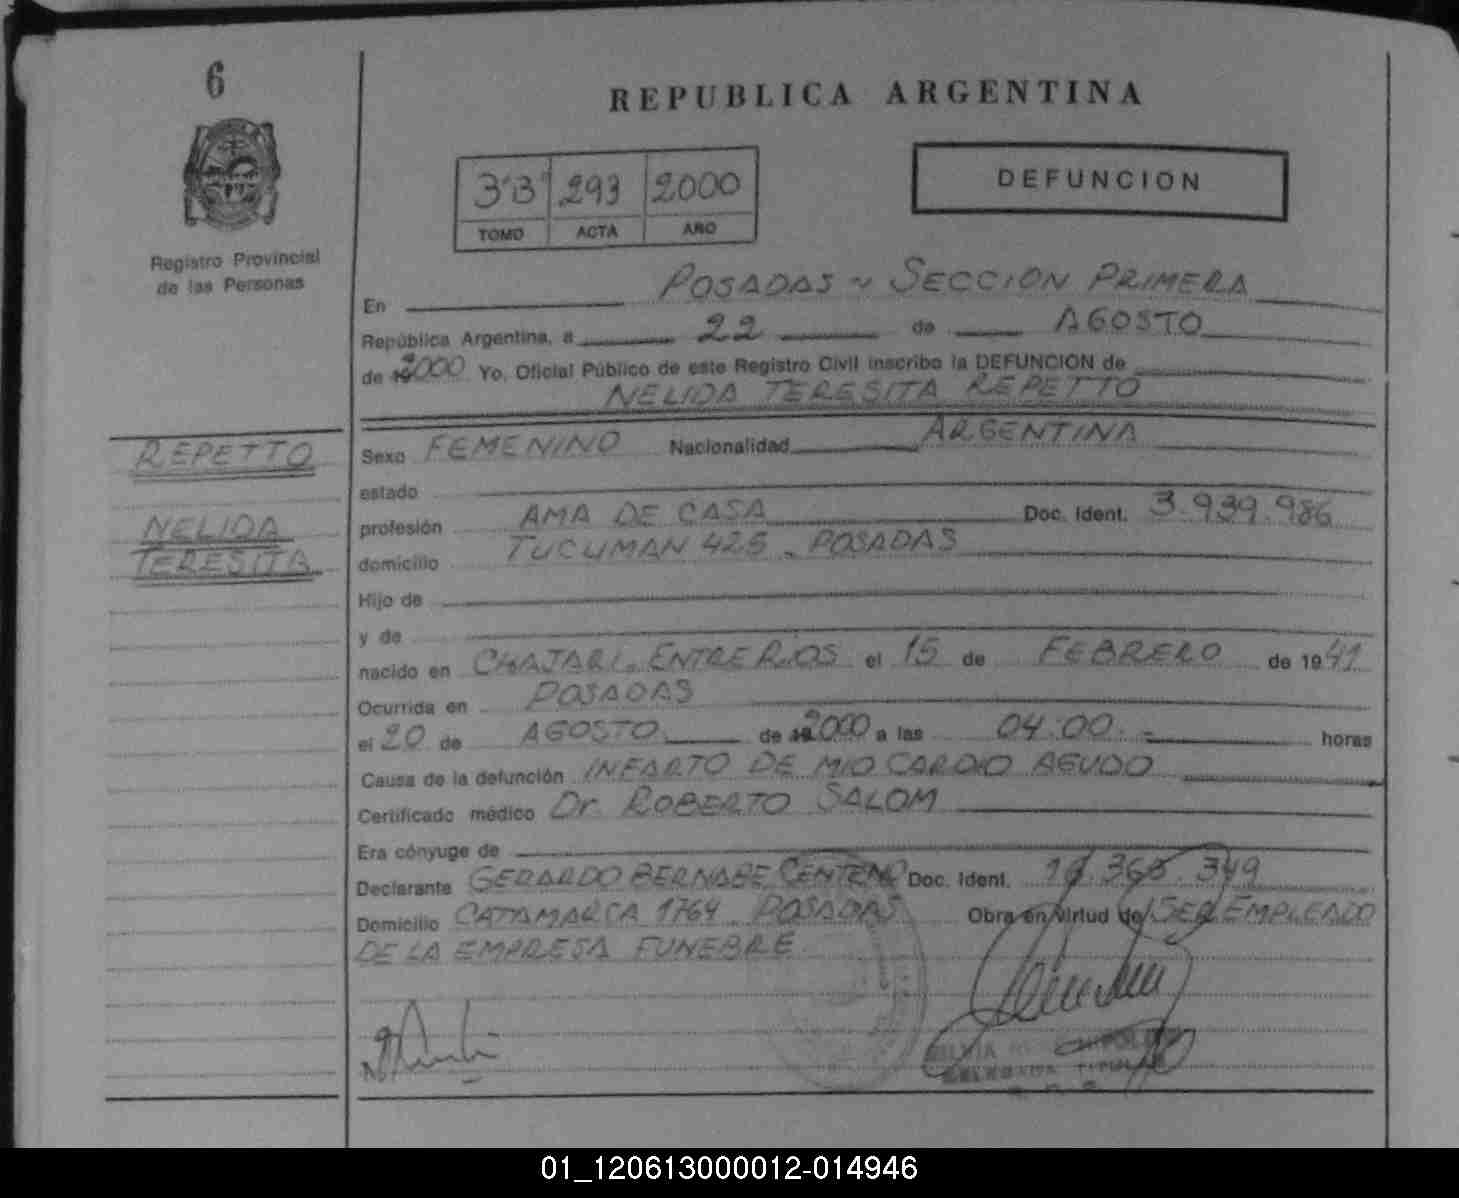 6
REPUBLICA ARGENTINA
3"B" 293 2000
TOMO ACTA AÑO
DEFUNCION
Registro Provincial
de las Personas
En POSADAS ~ SECCION PRIMERA
República Argentina, a 22 de AGOSTO
de 2000 Yo, Oficial Público de este Registro Civil inscribo la DEFUNCION de
NELIDA TERESITA REPETTO
REPETTO
NELIDA
TERESITA
Sexo FEMENINO Nacionalidad ARGENTINA
estado
profesión AMA DE CASA Doc. Ident. 3.939.986
domicilio TUCUMAN 425 - POSADAS
Hijo de
y de
nacido en CHAJARI - ENTRE RIOS el 15 de FEBRERO de 1941
Ocurrida en POSADAS
el 20 de AGOSTO de 2000 a las 04:00.- horas
Causa de la defunción INFARTO DE MIOCARDIO AGUDO
Certificado médico Dr. ROBERTO SALOM
Era cónyuge de
Declarante GERARDO BERNABE CENTENO Doc. Ident.
Domicilio CATAMARCA 1764 - POSADAS Obra en virtud de SER EMPLEADO
DE LA EMPRESA FUNEBRE
01_120613000012-014946